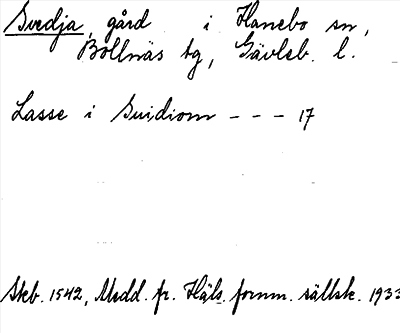 Svedja, gård i Hanebo sn,
Bollnäs tg, Gävleb. l.
Lasse i Suidiom --- 17
Skb. 1542, Medd. fr. Häls. fornm. sällsk. 1933